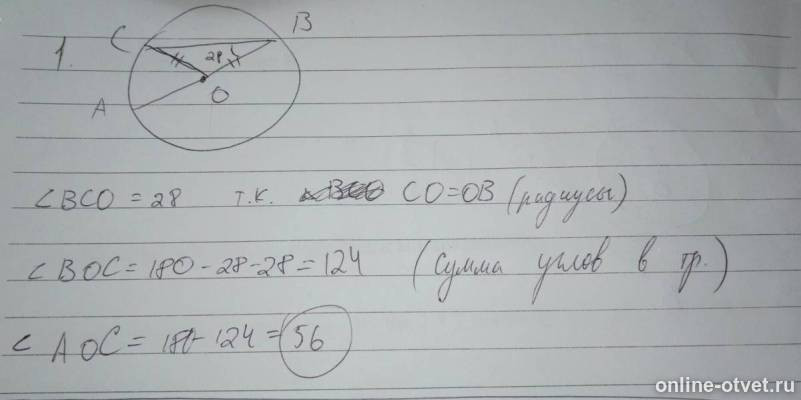 1.
C
B
28
O
A
∠BCO = 28 т.к. CO=OB (радиусы)
∠BOC = 180 - 28 - 28 = 124 (сумма углов в тр.)
∠AOC = 180 - 124 = 56
online-otvet.ru